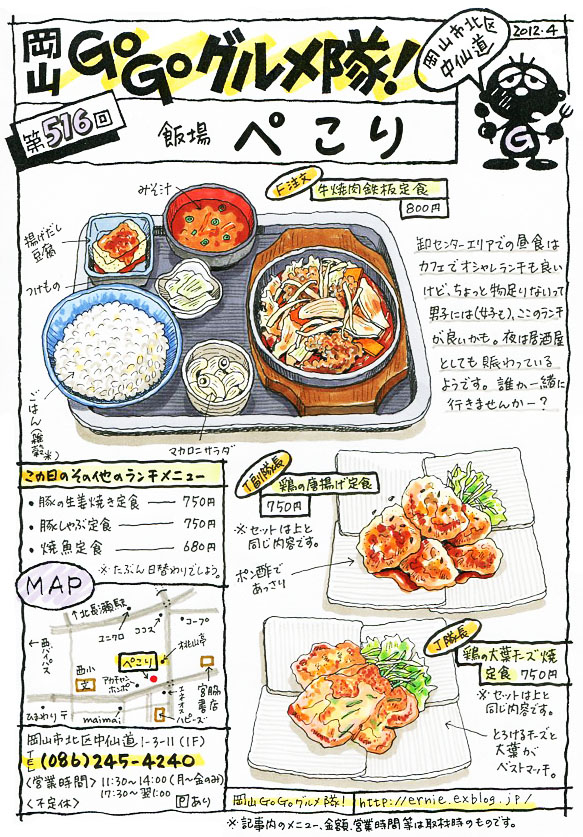 岡山 GOGOグルメ隊!
岡山市北区
中仙道
2012.4
第516回
飯場 ぺこり
F注文
牛焼肉鉄板定食
800円
みそ汁
揚げだし
豆腐
つけもの
ごはん(雑穀米)
マカロニサラダ
卸センターエリアでの昼食は
カフェでオシャレランチも良い
けど、ちょっと物足りないって
男子には(女子も)、ここのランチ
が良いかも。夜は居酒屋
としても賑わっている
ようです。誰か一緒に
行きませんかー?
この日のその他のランチメニュー
・豚の生姜焼き定食 — 750円
・豚しゃぶ定食 — 750円
・焼魚定食 — 680円
※たぶん日替わりでしょう。
T副隊長
鶏の唐揚げ定食
750円
※セットは上と
同じ内容です。
ポン酢で
あっさり
J隊長
鶏の大葉チーズ焼
定食 750円
※セットは上と
同じ内容です。
とろけるチーズと
大葉が
ベストマッチ。
MAP
↑北長瀬駅
ユニクロ
ココス
コープ
←西バイパス
ぺこり
桃山亭
西小
文
アカチャン
ホンポ
エネオス
宮脇
書店
ひまわりテ
maimai
ハピーズ
岡山市北区中仙道1-3-11(1F)
TEL (086)245-4240
<営業時間> 11:30~14:00(月~金のみ)
17:30~翌1:00
<不定休> Pあり
岡山GOGOグルメ隊! http://ernie.exblog.jp/
※記事内のメニュー、金額、営業時間等は取材時のものです。